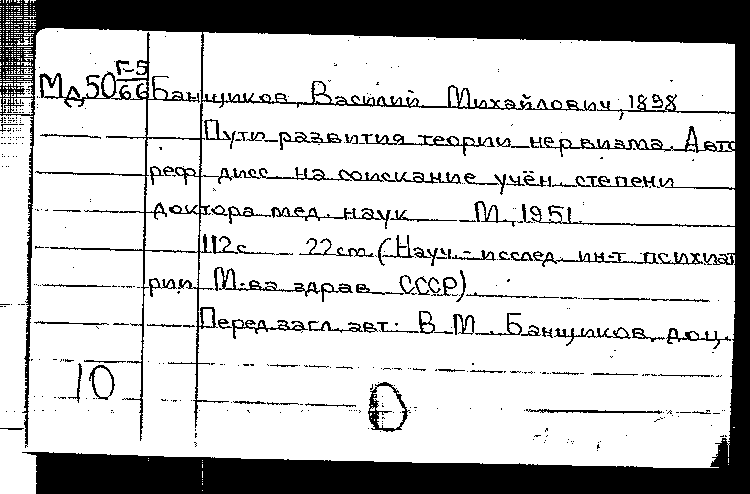 Мд50 Г-5/66 Банщиков, Василий Михайлович, 1898
Пути развития теории нервизма. Авто
реф. дисс. на соискание учён. степени
доктора мед. наук М., 1951.
112 с. 22 cm. (Науч.-исслед. ин-т психиат
рии М-ва здрав. СССР).
Перед загл. авт.: В. М. Банщиков, доц.
10